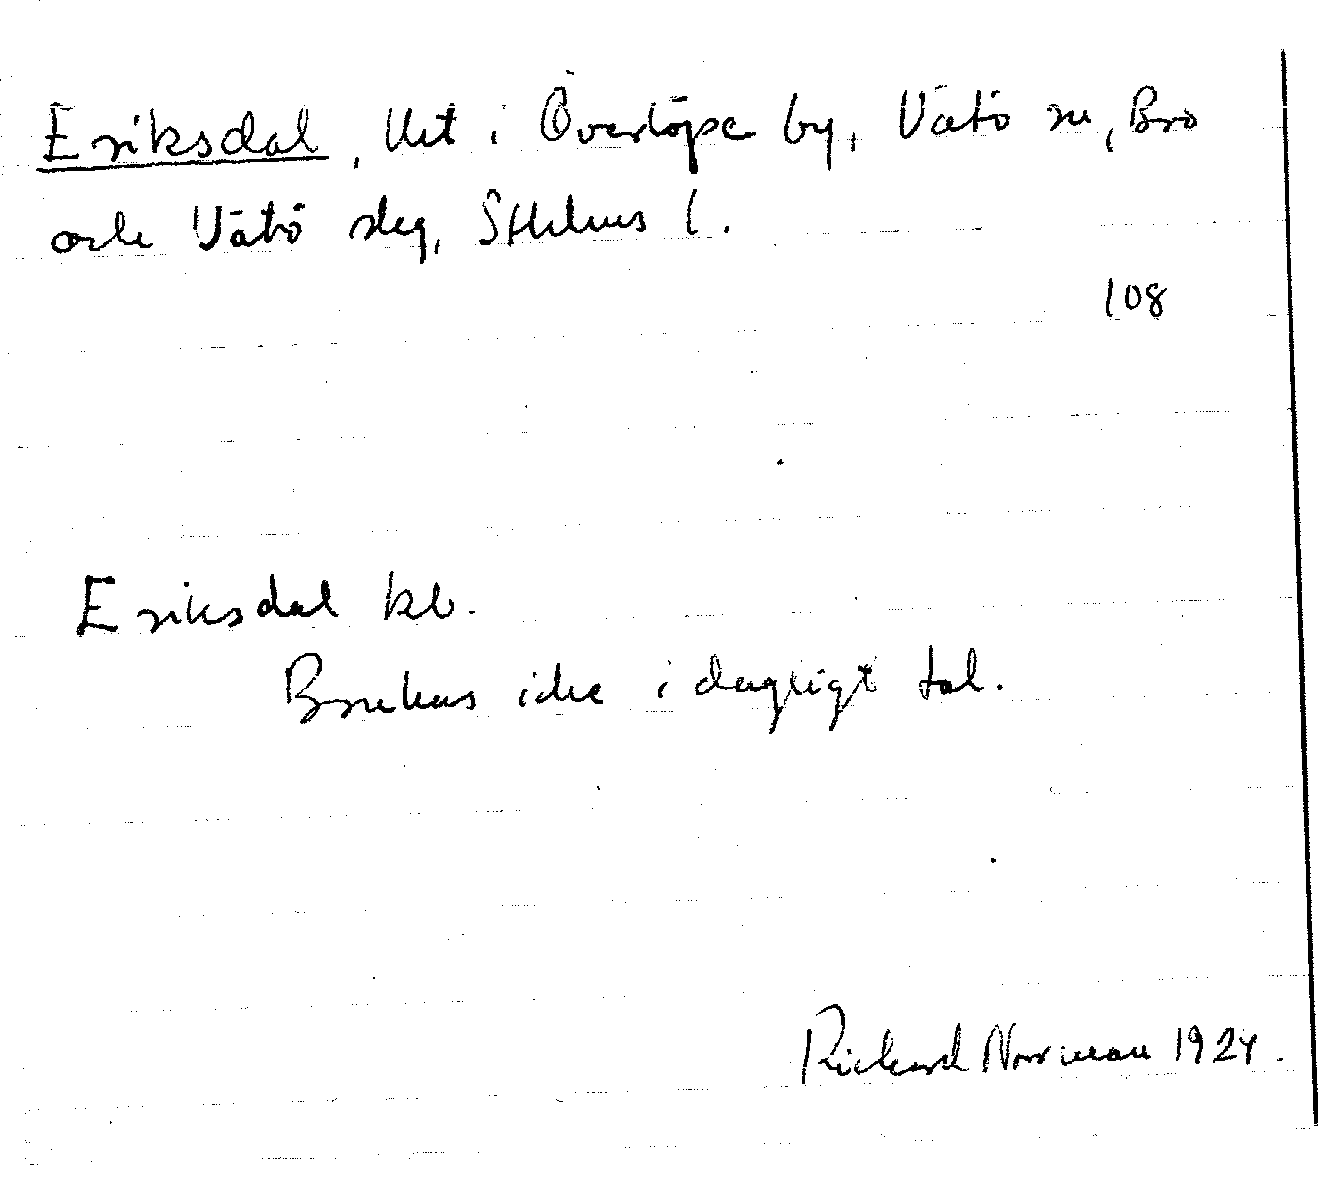 Eriksdal, lht i Överlöpe by, Vätö sn, Bro
och Vätö slag, Sthlms l.
108
Eriksdal kb.
Brukas icke i dagligt tal.
Rickard Norrman 1924.